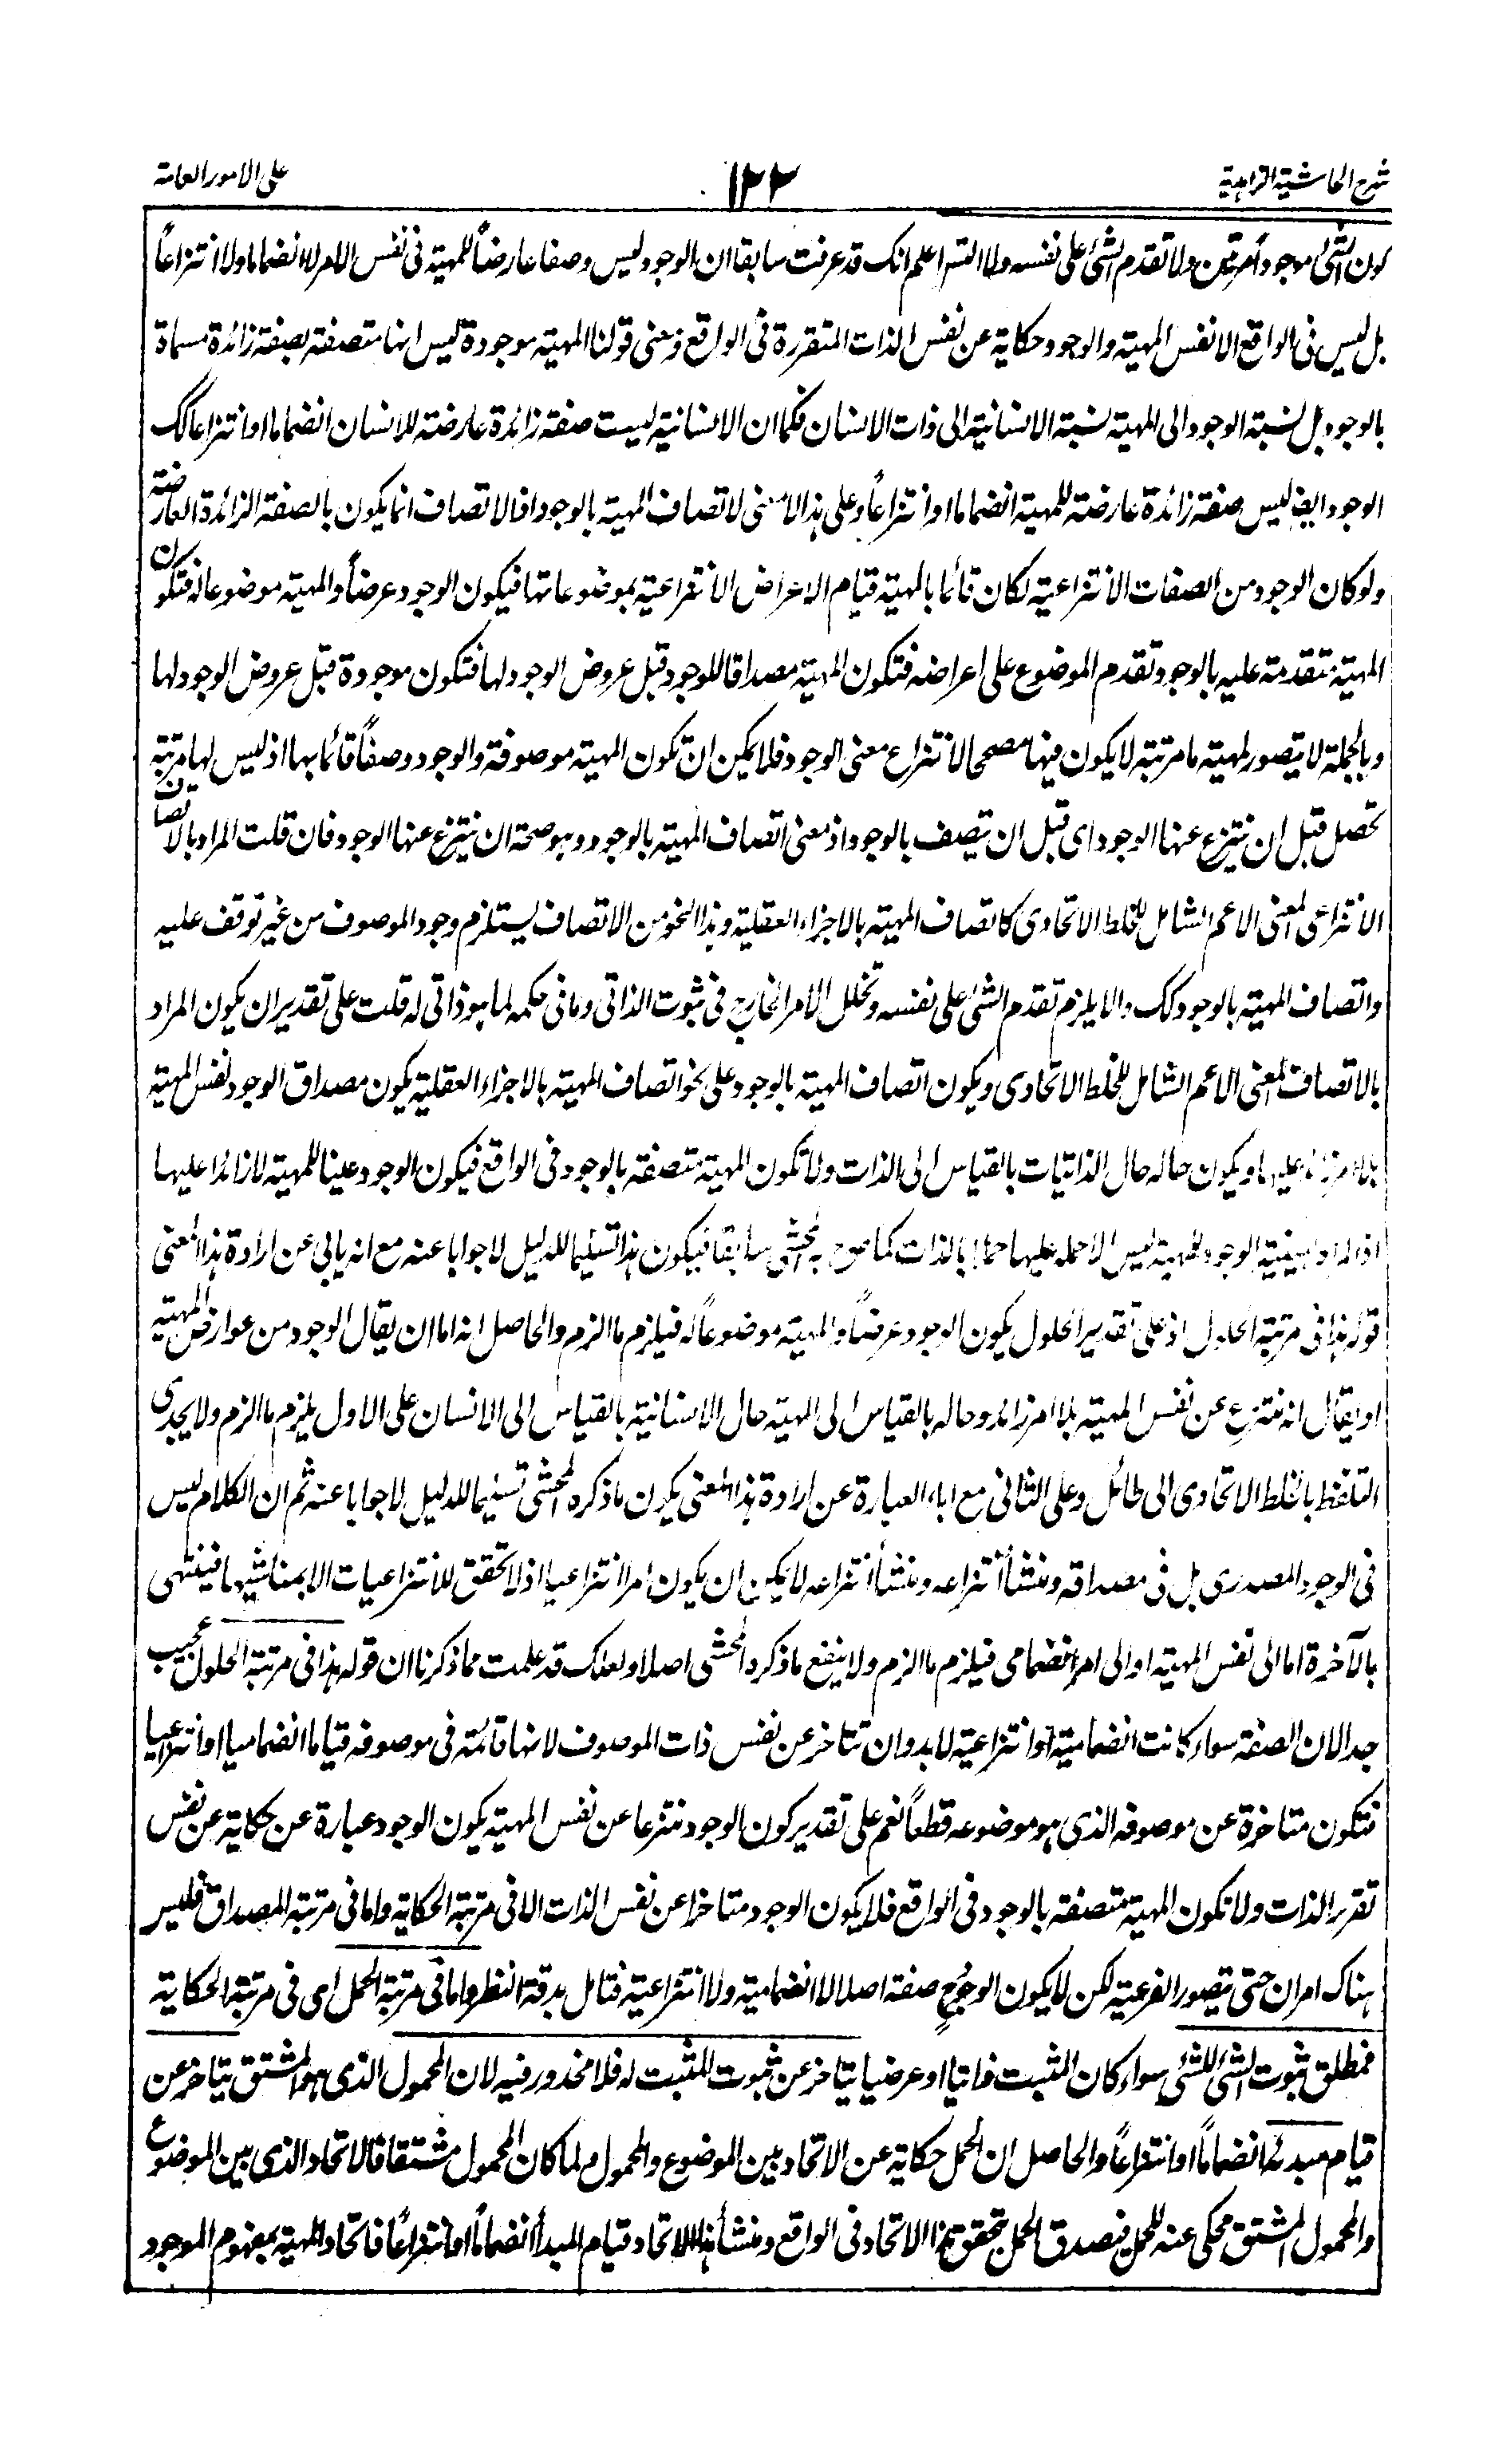 شرح الحاشية الزاهدية
١٢٢
على الامور العامة
كون الشئ موجودا مرتين ولا تقدم الشئ على نفسه ولا التسلسل اعلم انك قد عرفت سابقا ان الوجود ليس وصفا عارضاً للمهية فى نفس الامر لا انضماما ولا انتزاعاً
بل ليس فى الواقع الا نفس المهية والوجود حكاية عن نفس الذات المتقررة فى الواقع ومعنى قولنا المهية موجودة ليس انها متصفة بصفة زائدة مسماة
بالوجود بل نسبة الوجود الى المهية نسبة الانسانية الى ذات الانسان فكما ان الانسانية ليست صفة زائدة عارضة للانسان انضماما او انتزاعا كك
الوجود ايض ليس صفة زائدة عارضة للمهية انضماما او انتزاعاً وعلى هذا لا معنى لاتصاف المهية بالوجود اذ الاتصاف انما يكون بالصفة الزائدة العارضة
ولو كان الوجود من الصفات الانتزاعية لكان قائما بالمهية قيام الاعراض الانتزاعية بموضوعاتها فيكون الوجود عرضاً والمهية موضوعا له فتكون
المهية متقدمة عليه بالوجود تقدم الموضوع على اعراضه فتكون المهية مصداقا للوجود قبل عروض الوجود لها فتكون موجودة قبل عروض الوجود لها
وبالجملة لا يتصور لمهية ما مرتبة لا يكون فيها مصححا لانتزاع معنى الوجود فلا يمكن ان تكون المهية موصوفة والوجود وصفاً قائما بها اذ ليس لها مرتبة
تحصل قبل ان ينتزع عنها الوجود اى قبل ان يتصف بالوجود اذ معنى اتصاف المهية بالوجود وهو صحة ان ينتزع عنها الوجود فان قلت المراد بالاتصاف
الانتزاعى المعنى الاعم الشامل للخلط الاتحادى كاتصاف المهية بالاجزاء العقلية وهذا النحو من الاتصاف يستلزم وجود الموصوف من غير توقف عليه
واتصاف المهية بالوجود كك والا يلزم تقدم الشئ على نفسه وتخلل الامر الخارج فى ثبوت الذاتى وما فى حكمه لما هو ذاتى له قلت على تقدير ان يكون المراد
بالاتصاف المعنى الاعم الشامل للخلط الاتحادى ويكون اتصاف المهية بالوجود على نحو اتصاف المهية بالاجزاء العقلية يكون مصداق الوجود نفس المهية
بلا امر زائد عليها ويكون حاله حال الذاتيات بالقياس الى الذات ولا تكون المهية متصفة بالوجود فى الواقع فيكون الوجود عينا للمهية لا زائدا عليها
اذ المراد بعينية الوجود للمهية ليس الا حمله عليها حملا بالذات كما صرح به المحشى سابقا فيكون هذا تسليما للدليل لا جوابا عنه مع انه يابى عن ارادة هذا المعنى
قوله هذا فى مرتبة الحلول اذ على تقدير الحلول يكون الوجود عرضاً والمهية موضوعاً له فيلزم ما الزم والحاصل انه اما ان يقال الوجود من عوارض المهية
او يقال انه منتزع عن نفس المهية بلا امر زائد وحاله بالقياس الى المهية حال الانسانية بالقياس الى الانسان على الاول يلزم ما الزم ولا يجدى
التلفظ بالخلط الاتحادى الى طائل وعلى الثانى مع اباء العبارة عن ارادة هذا المعنى يكون ما ذكره المحشى تسليما للدليل لا جوابا عنه ثم ان الكلام ليس
فى الوجود المصدرى بل فى مصداقه ومنشأ انتزاعه ومنشأ انتزاعه لا يمكن ان يكون امرا انتزاعيا اذ لا تحقق للانتزاعيات الا بمناشيها فينتهى
بالآخرة اما الى نفس المهية او الى امر انضمامى فيلزم ما الزم ولا ينفع ما ذكره المحشى اصلا ولعلك قد علمت مما ذكرنا ان قوله هذا فى مرتبة الحلول عجيب
جدا لان الصفة سواء كانت انضمامية او انتزاعية لا بد وان تتاخر عن نفس ذات الموصوف لانها قائمة فى موصوفه قياما انضماميا او انتزاعيا
فتكون متاخرة عن موصوفه الذى هو موضوعه قطعاً نعم على تقدير كون الوجود منتزعا عن نفس المهية يكون الوجود عبارة عن حكاية عن نفس
تقرر الذات ولا تكون المهية متصفة بالوجود فى الواقع فلا يكون الوجود متاخرا عن نفس الذات الا فى مرتبة الحكاية واما فى مرتبة المصداق فليس
هناك امران حتى يتصور الفرعية لكن لا يكون الوجود ح صفة اصلا لا انضمامية ولا انتزاعية فتامل بدقة النظر واما فى مرتبة الحمل اى فى مرتبة الحكاية
فمطلق ثبوت الشئ للشئ سواء كان المثبت ذاتيا او عرضيا يتاخر عن ثبوت المثبت له فلا محذور فيه لان المحمول الذى هو المشتق يتاخر عن
قيام مبدئه انضماماً او انتزاعاً والحاصل ان الحمل حكاية عن الاتحاد بين الموضوع والمحمول ولما كان المحمول مشتقا فالاتحاد الذى بين الموضوع
والمحمول المشتق محكى عنه للحمل فيصدق الحمل بتحقق هذا الاتحاد فى الواقع ومنشأ هذا الاتحاد قيام المبدأ انضماماً او انتزاعاً فاتحاد المهية بمفهوم الموجود